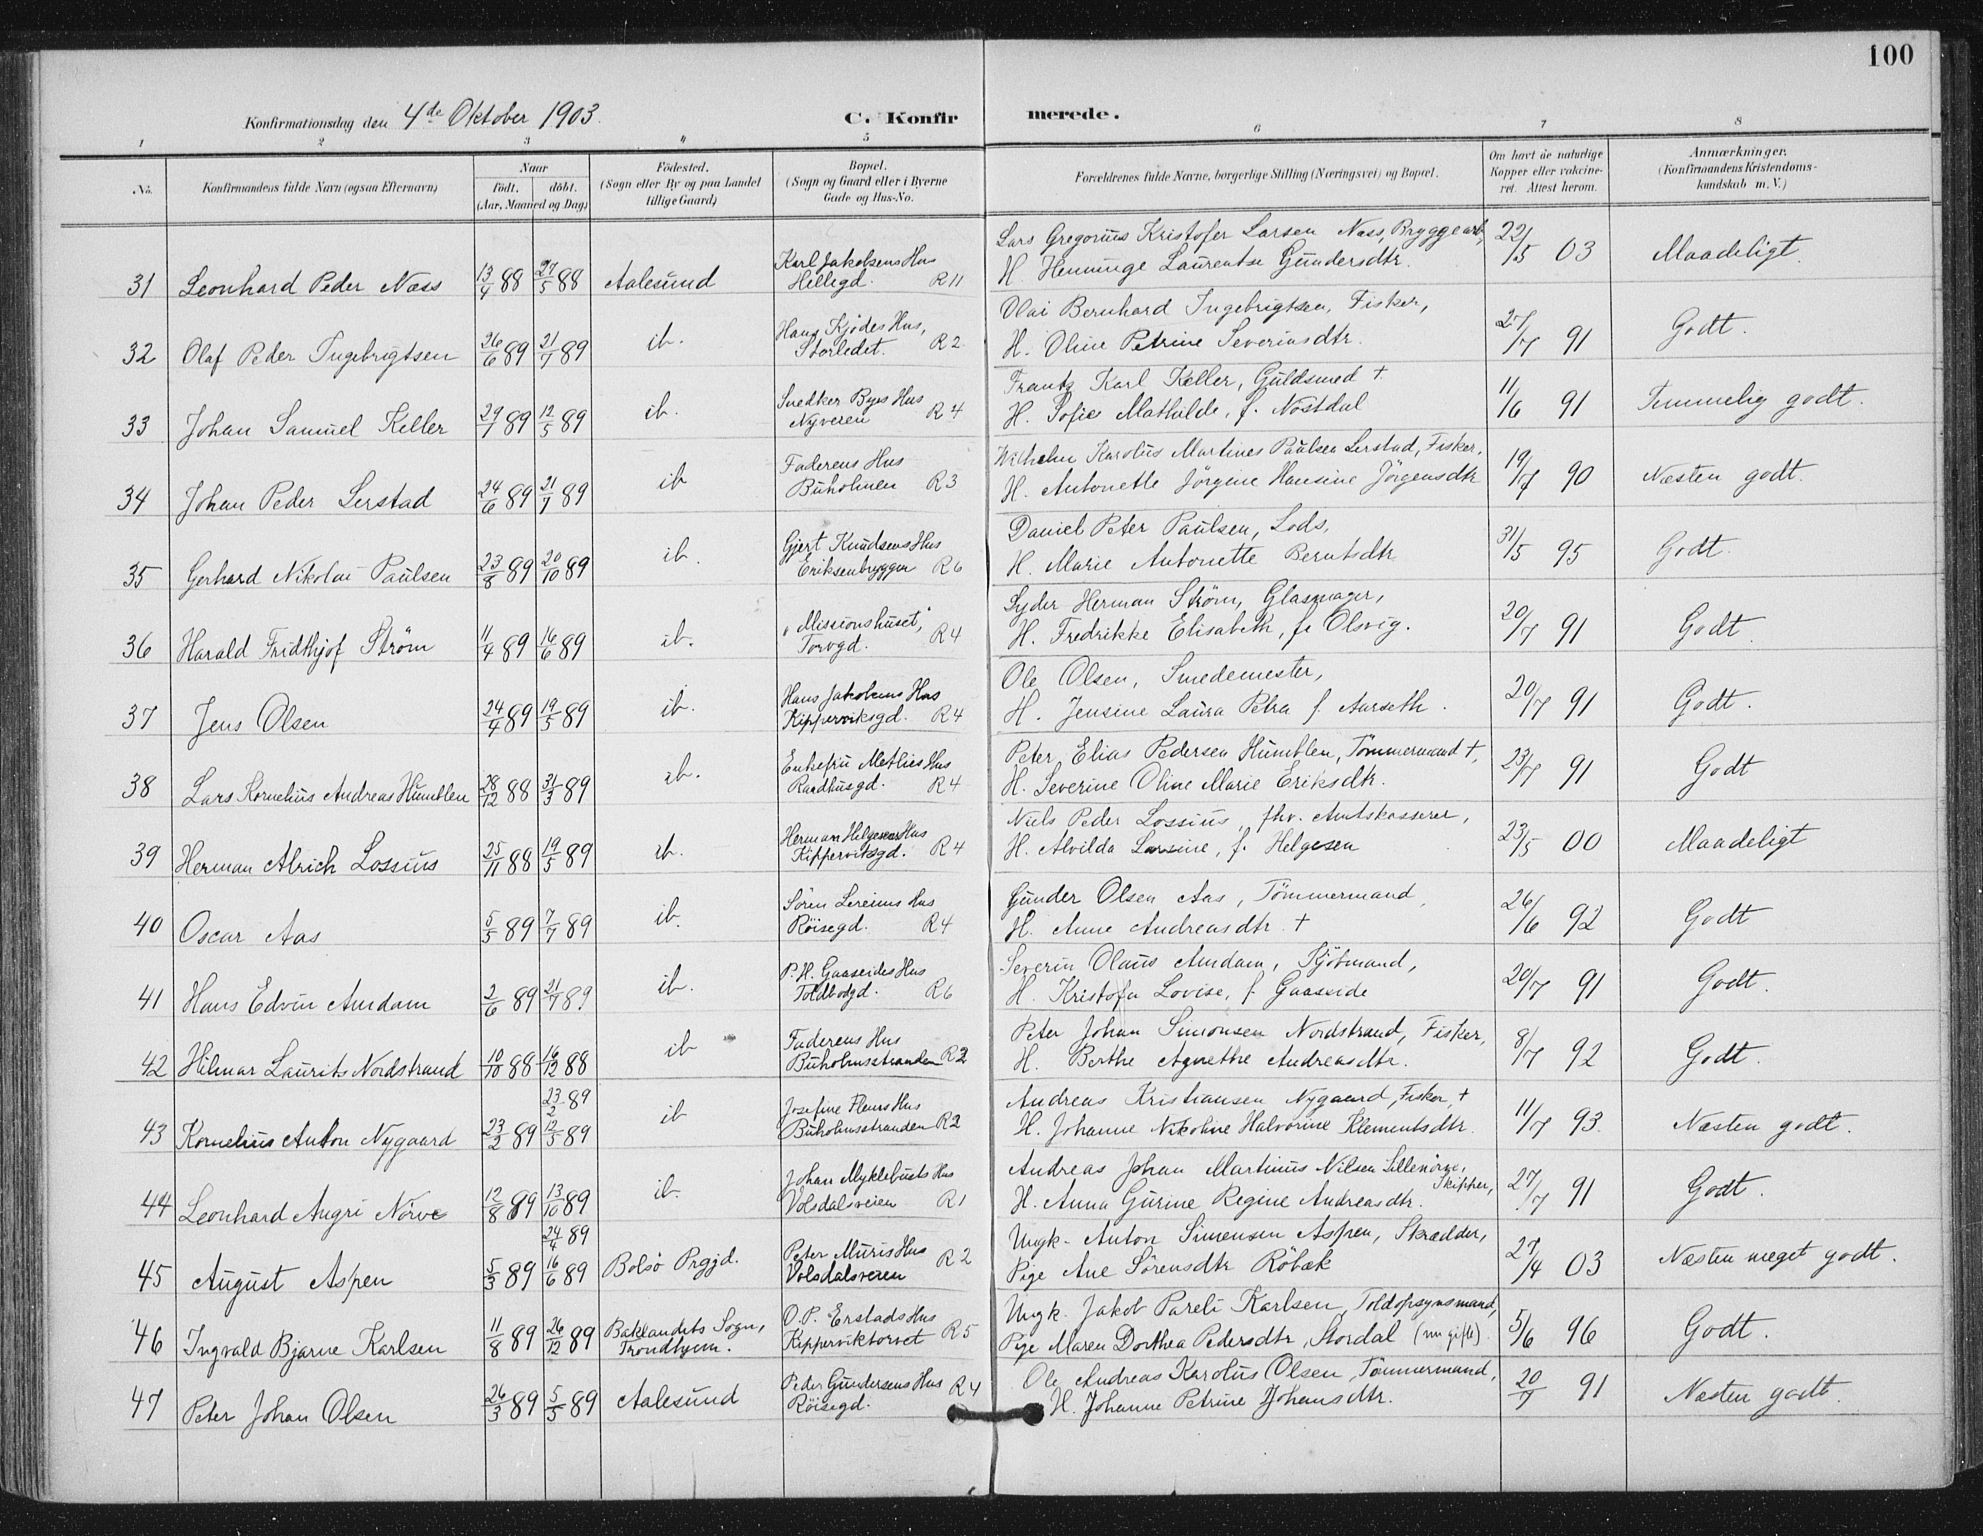 100
Konfirmationsdag den 4de Oktober 1903. C. Konfirmerede.
1 2 3 4 5 6 7 8
No. Konfirmandens fulde Navn (ogsaa Efternavn) Naar født. døbt. (Aar, Maaned og Dag) Fødested. (Sogn eller By og paa Landet tillige Gaard) Bopæl. (Sogn og Gaard eller i Byerne Gade og Hus-No. Forældrenes fulde Navne, borgerlige Stilling (Næringsvei) og Bopæl. Om havt de naturlige Kopper eller vakcineret. Attest herom. Anmærkninger. (Konfirmandens Kristendomskundskab m. V.)
31 Leonhard Peder Næss 13/4 88 27/5 88 Aalesund Karl Jakobsens Hus Hellegd. R 11 Lars Gregorius Kristofer Larsen Næss, Bryggearb., H. Henninge Laurentse Gundersdtr. 22/5 03 Maadeligt.
32 Olaf Peder Ingebrigtsen 26/6 89 21/7 89 ib. Hans Kjødes Hus, Storledet. R 2 Olai Bernhard Ingebrigtsen, Fisker, H. Oline Petrine Severinsdtr. 27/7 91 Godt.
33 Johan Samuel Keller 29/1 89 12/5 89 ib. Snedker Byes Hus Nyveien R 4 Frantz Karl Keller, Guldsmed + H. Sofie Mathilde, f. Nostdal 11/6 91 Temmelig godt.
34 Johan Peder Lerstad 24/6 89 21/7 89 ib Faderens Hus Buholmen R 3 Wilhelm Karolus Martines Paulsen Lerstad, Fisker, H. Antonette Jörgine Hansine Jörgensdtr 19/7 90 Næsten godt.
35 Gerhard Nikolai Paulsen 23/8 89 20/10 89 ib. Gjert Knudsens Hus Eriksenbryggen R 6 Daniel Peter Paulsen, Lods, H. Marie Antonette Berntsdtr 31/5 95 Godt.
36 Harald Fridthjof Strøm 11/4 89 16/6 89 ib. "Missionshuset", Torvgd. R 4 Syder Herman Strøm, Glasmager, H. Fredrikke Elisabeth, f. Olsvig. 20/7 91 Godt.
37 Jens Olsen 24/4 89 19/5 89 ib. Hans Jakobsens Hus Kipperviksgd. R 4 Ole Olsen, Smedemester, H. Jensine Laura Petra f. Aarseth. 20/7 91 Godt.
38 Lars Kornelius Andreas Humblen 28/12 88 31/3 89 ib. Enkefru Methies Hus Raadhusgd. R 4 Peter Elias Pedersen Humblen, Tømmermand +, H. Severine Oline Marie Eriksdtr. 23/7 91 Godt
39 Herman Alrich Lossius 25/11 88 19/5 89 ib. Herman Helgesens Hus Kipperviksgd. R 4 Niels Peder Lossius, fhv. Amtskasserer, H. Alvilda Larsine, f. Helgesen 23/5 00 Maadeligt
40 Oscar Aas 5/5 89 7/7 89 ib. Søren Hus Röisegd. R 4 Gunder Olsen Aas, Tömmermand, H. Anne Andreasdtr. + 26/6 92 Godt
41 Hans Edvin Amdam 2/6 89 21/7 89 ib. P. H. Gaaseides Hus Toldbodgd. R 6 Severin Olaus Amdam, Kjöbmand, H. Kristofa Lovise, f. Gaaseide 20/7 91 Godt.
42 Hilmar Laurits Nordstrand 10/10 88 16/12 88 ib Faderens Hus Buholmsstranden R 2 Peter Johan Simonsen Nordstrand, Fisker, H. Berthe Agnethe Andreasdtr. 8/7 92 Godt.
43 Kornelius Anton Nygaard 23/2 89 23/2 89 12/5 89 ib Josefine Fleurs Hus Buholmsstranden R 2 Andreas Kristiansen Nygaard, Fisker, + H. Johanne Nikoline Halvorine Klementsdtr. 11/7 93. Næsten godt.
44 Leonhard Angri Nörve 12/8 89 13/10 89 ib. Johan Myklebusts Hus Volsdalsveien R 1 Andreas Johan Martinus Nilsen Lillenörve, Skipper, H. Anna Gurine Regine Andreasdtr. 27/7 91 Godt.
45 August Aspen 5/3 89 24/4 89 16/6 89 Bolsø Prgjd. Peter Muris Hus Volsdalsveien R 2 Ungk. Anton Simensen Aspen, Skrædder, Pige Ane Sörensdtr Röbæk 27/4 03 Næsten meget godt.
46 Ingvald Bjarne Karlsen 11/8 89 26/12 89 Baklandets Sogn, Trondhjem. O. P. Erstads Hus Kipperviktorvet R 5 Ungk. Jakob Pareli Karlsen, Toldopsynsmand, Pige Maren Dorthea Pedersdtr, Stordal (nu gifte). 5/6 96 Godt.
47 Peter Johan Olsen 26/3 89 5/5 89 Aalesund Peder Gundersens Hus Röisegd. R 4 Ole Andreas Karolus Olsen, Tömmermand, H. Johanne Petrine Johansdtr. 20/7 91 Næsten godt.